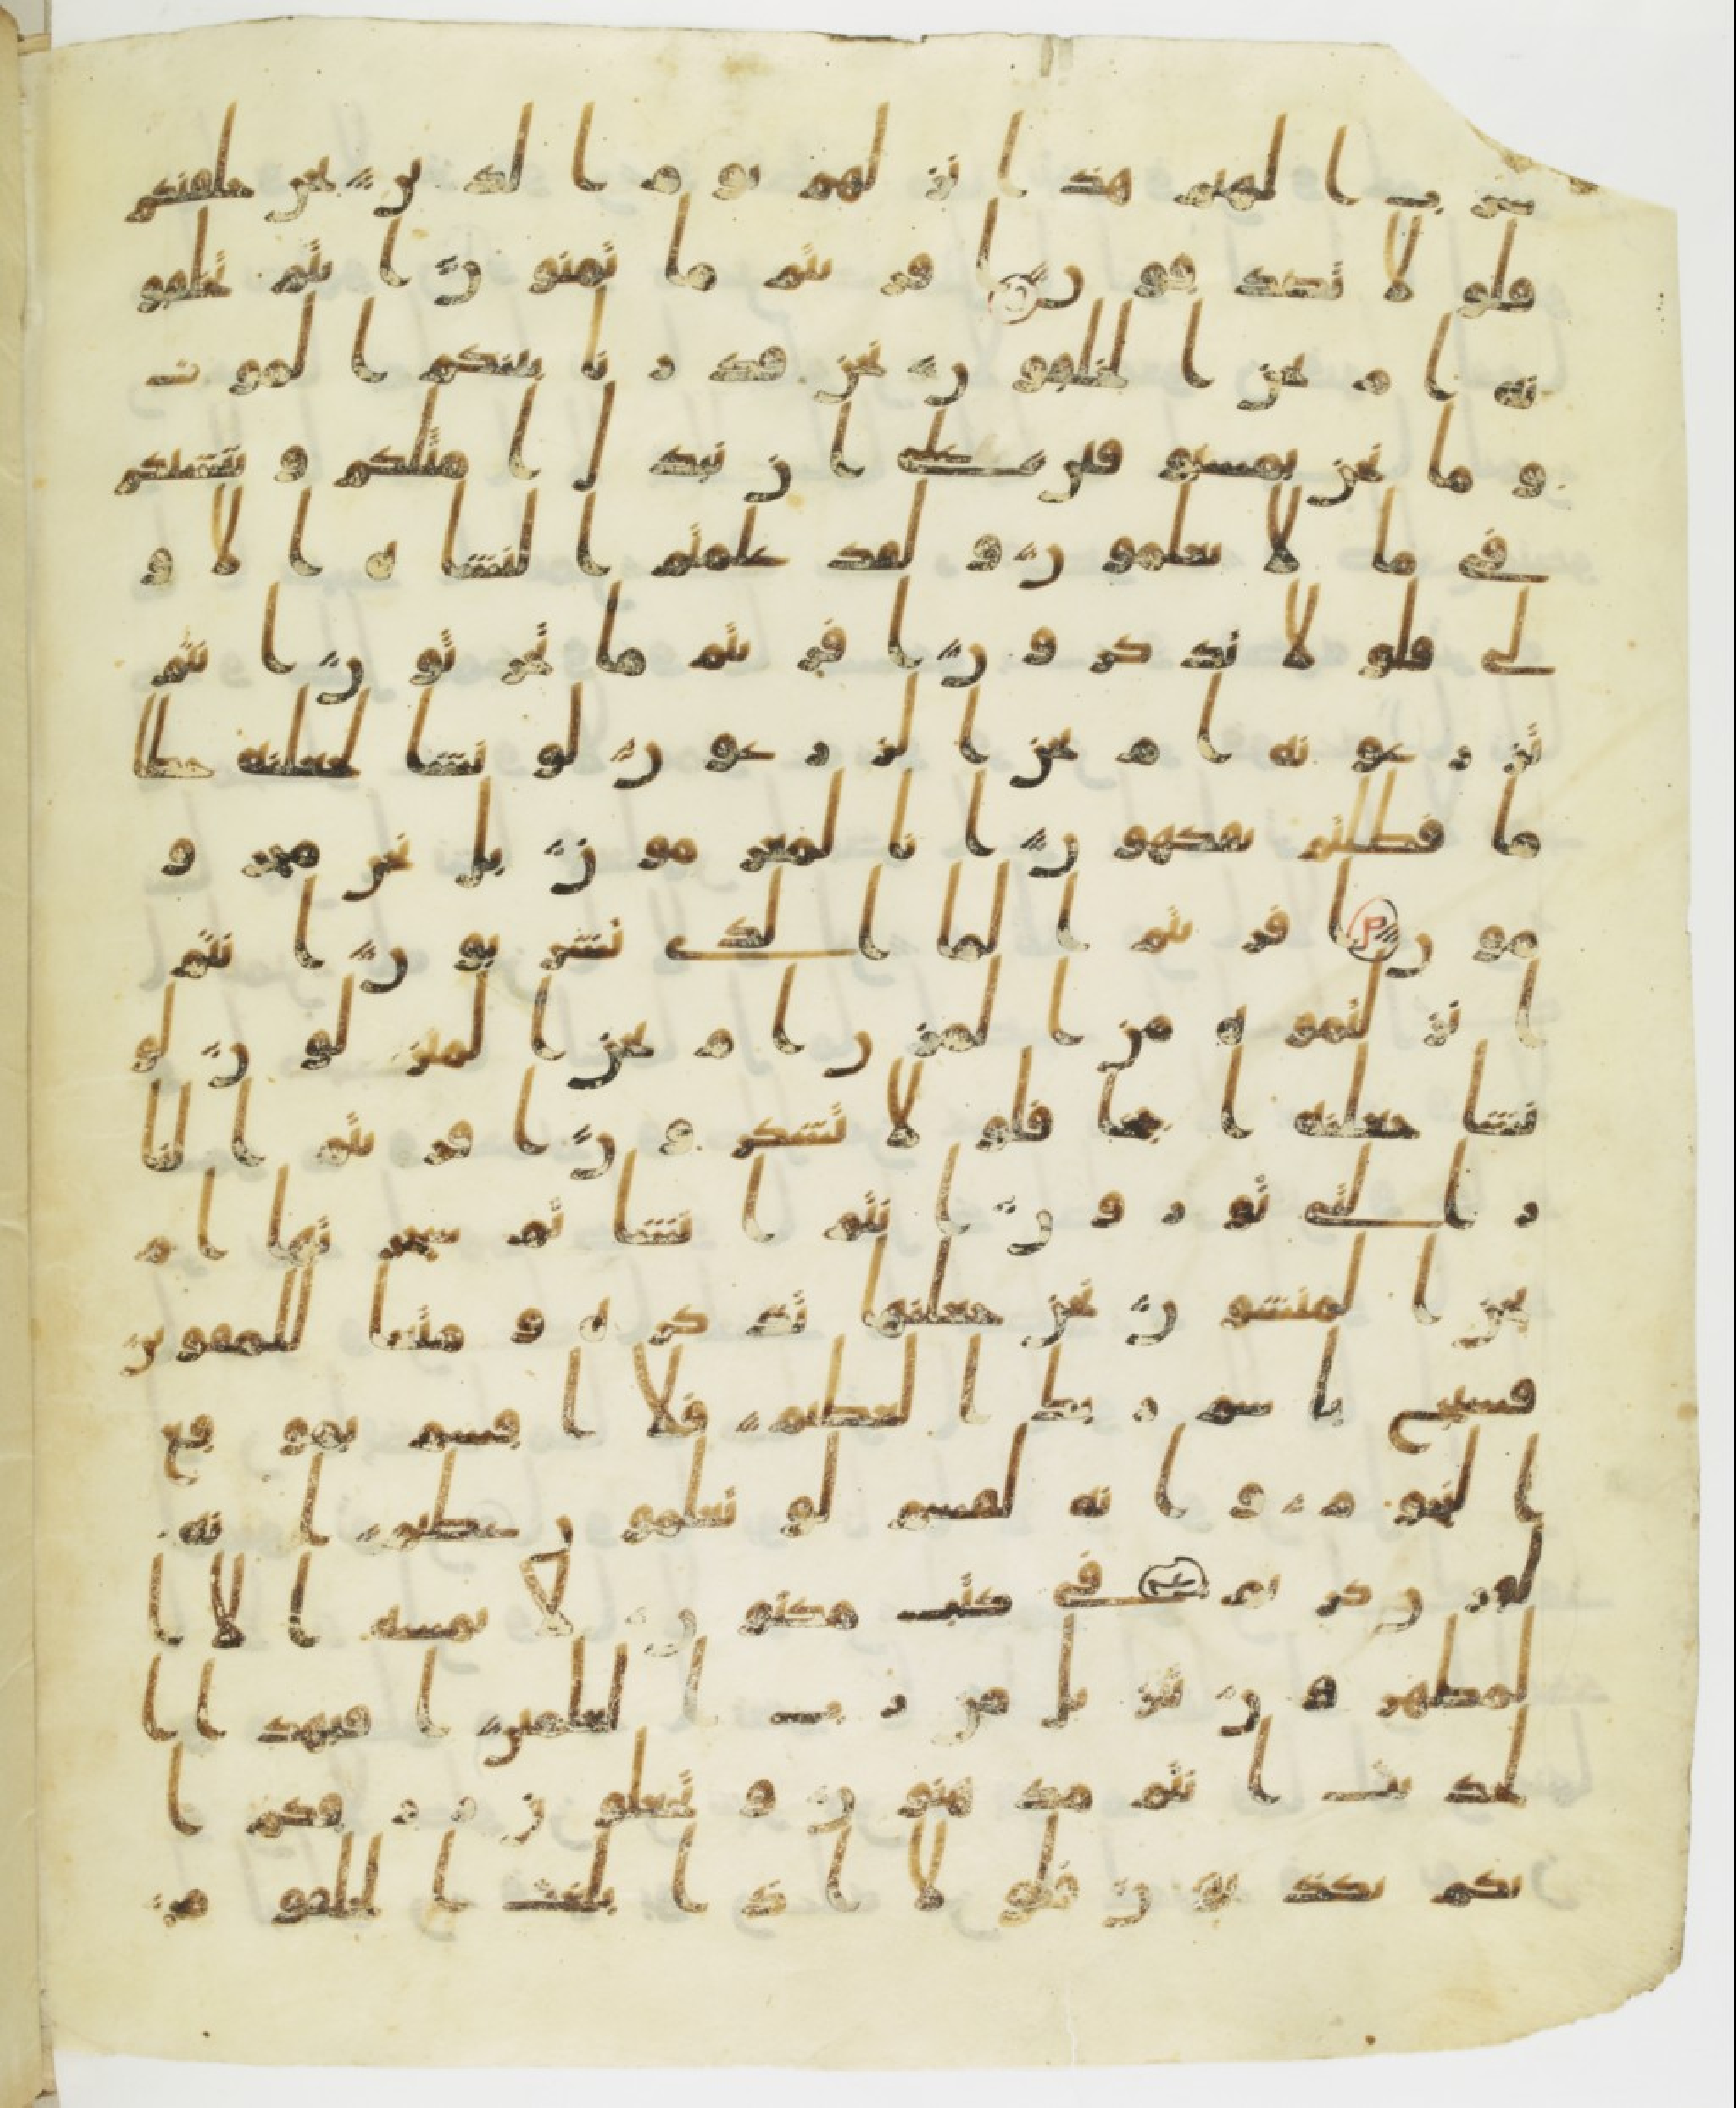 شرب الهيم هذا نزلهم يوم الدين نحن خلقنكم
فلولا تصدقون افريتم ما تمنون انتم تخلقو
نه ام نحن الخلقون نحن قدرنا بينكم الموت
و ما نحن بمسبوقين على ان نبدل امثلكم و ننشئكم
في ما لا تعلمون و لقد علمتم النشاه الاو
لى فلولا تذكرون افريتم ما تحرثون انتم
تزرعونه ام نحن الزرعون لو نشا لجعلنه حطا
ما فظلتم تفكهون انا لمغرمون بل نحن محرو
مون افريتم الما الذى تشربون انتم
انزلتموه من المزن ام نحن المنزلون لو
نشا جعلنه اجاجا فلولا تشكرون افريتم النا
ر التى تورون انتم انشاتم شجرتها ام
نحن المنشون نحن جعلنها تذكره و متعا للمقوين
فسبح باسم ربك العظيم فلا اقسم بموقع
النجوم و انه لقسم لو تعلمون عظيم انه
لقرن كريم في كتب مكنون لا يمسه الا ا
لمطهرون تنزيل من رب العلمين افبهذا ا
لحديث انتم مدهنون و تجعلون رزقكم ا
نكم تكذبون فلولا اذا بلغت الحلقوم